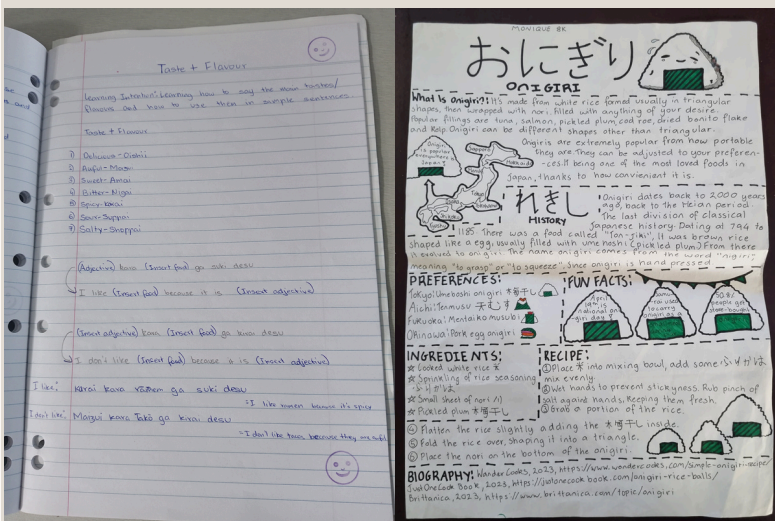 Taste + Flavour
Learning Intentive: Learning how to say the main tastes/
flavours and how to use them in simple sentences.
Taste + Flavour
1) Delicious - Oishii
2) Awful - Mazui
3) Sweet - Amai
4) Bitter - Nigai
5) Spicy - Karai
6) Sour - Suppai
7) Salty - Shoppai
(Adjective) kara (Insert food) ga suki desu
I like (Insert food) because it is (Insert adjective)
(Insert adjective) kara (Insert food) ga kirai desu
I don't like (Insert food) because it is (Insert adjective)
I like: Karai kara rāmen ga suki desu
=I like ramen because it's spicy
I don't like: Mazui kara Tako ga kirai desu
=I don't like taco, because they are
MONIQUE 8K
おにぎり
ONIGIRI
What Is Onigiri?: It's made from white rice formed usually in triangular
shapes, then wrapped with nori. Filled with anything of your desire.
Popular fillings are tuna, salmon, pickled plum, cod roe, dried bonito flake
and Kelp. Onigiri can be different shapes other than triangular.
Onigiri is popular everywhere in Japan!
Onigiris are extremely popular from how portable
they are. They can be adjusted to your preferen-
-ces. It being one of the most loved foods in
Japan, thanks to how convienient it is.
れきし
HISTORY
Onigiri dates back to 2000 years
ago, back to the Heian period.
The last division of classical
Japanese history. Dating at 794 to
1185. There was a food called "Ton-jiki". It was brown rice
shaped like a egg, usually filled with umeboshi (pickled plum) From there
it evolved to onigiri. The name onigiri comes from the word "nigiri"
meaning "to grasp" or "to squeeze". Since onigiri is hand pressed
PREFERENCES:
Tokyo: Umeboshi onigiri
Aichi: Tenmusu 天むす
Fukuoka: Mentaiko musubi
Okinawa: Pork egg onigiri
FUN FACTS:
national on
giri day
used
to carry
onigiri as a
50.8%
people get
store-bought
INGREDIENTS:
☆ Cooked white rice 米
☆ Sprinkling of rice seasoning
☆ Small sheet of nori
☆ Pickled plum 梅干し
RECIPE:
① Place 米 into mixing bowl, add some
mix evenly.
② Wet hands to prevent stickyness. Rub pinch of
salt against hands, Keeping them fresh.
③ Grab a portion of the rice.
④ Flatten the rice slightly adding the 梅干し inside.
⑤ Fold the rice over, shaping it into a triangle.
⑥ Place the nori on the bottom of the onigiri.
BIOGRAPHY: WanderCooks, 2023, https://www.wandercooks.com/simple-onigiri-recipe/
JustOneCook Book, 2023, https://justonecook book.com/onigiri-rice-balls/
Brittanica, 2023, https://www.brittanica.com/topic/onigiri